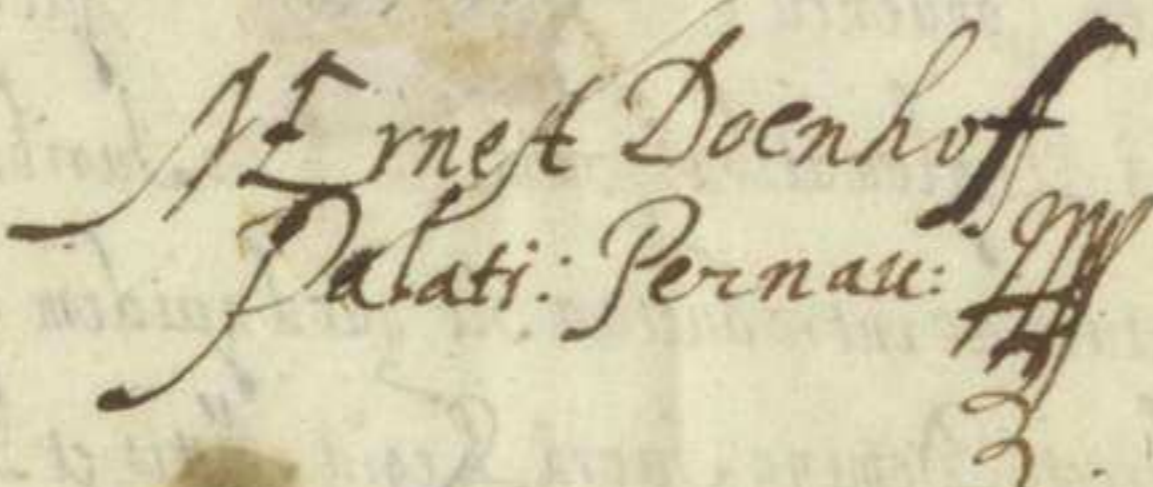 Ernest Doenhoff
Palati: Pernau: